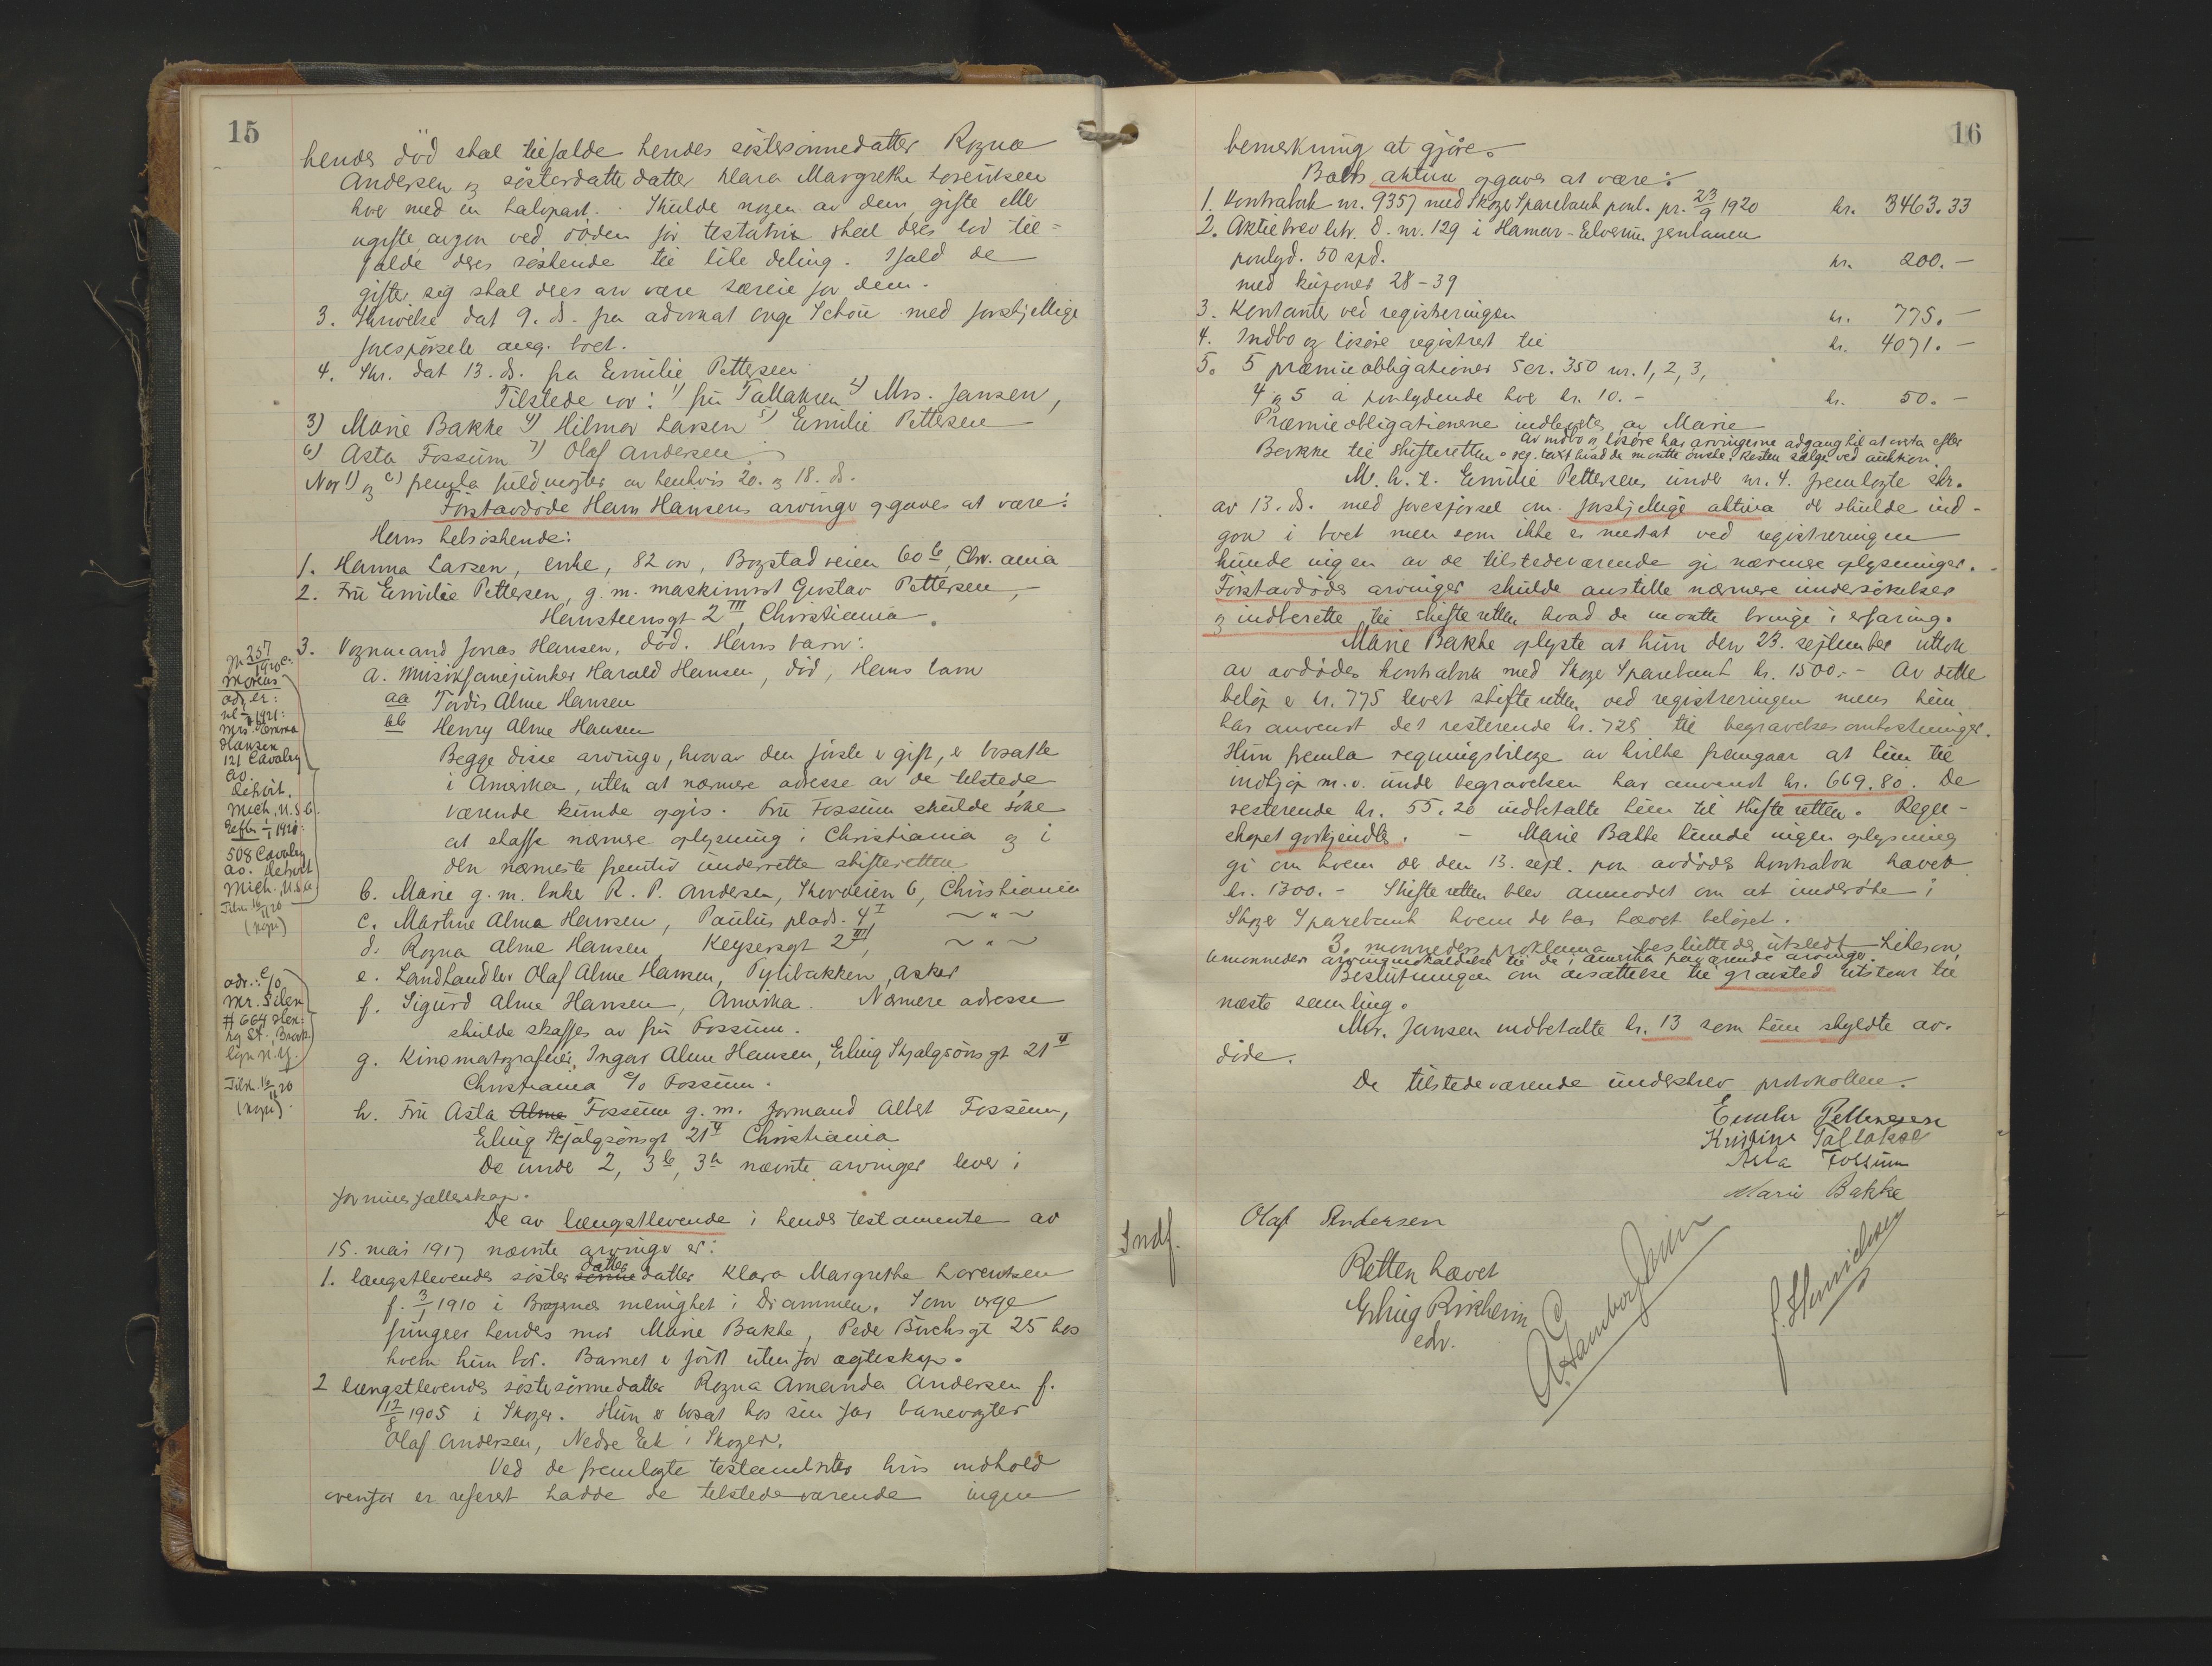 15
hendes död skal tilfalde hendes söstersönnedatter Ragna
Andersen og sösterdatterdatter Klara Margrethe Lorentsen
hver med en halvpart. Skulde nogen av dem gifte eller
ugifte avgaa ved döden för testatrix skal deres lod til=
falde deres söskende til like deling. Ifald de
gifter seg skal deres arv være særeie for dem.
3. Skrivelse dat 9. ds. fra advokat Schou med forskjellige
forespörsele ang. boet.
4. Skr. dat 13. ds. fra Emilie Pettersen
Tilstede var: 1) fru Tallaksen 2) Mrs. Jansen,
3) Marie Bakke 4) Hilmar Larsen 5) Emilie Pettersen
6) Asta Fossum 7) Olaf Andersen
Nr 1) og 2) fremla fuldmagter av henhvis 20. og 18. ds.
Förstavdöde Hans Hansens arvinger opgaves at være:
Hans helsöskende:
1. Hanna Larsen, enke, 82 aar, Bogstadveien 60 b, Chr.ania
2. Fru Emilie Pettersen, g. m. maskinist Gustav Pettersen,
Hansteensgt 2 III, Christiania.
3. Vognmand Jonas Hansen, död. Hans barn:
a. Musikfanejunker Harald Hansen, död, Hans barn
aa Tordis Alme Hansen
bb Henry Alme Hansen
Begge disse arvinger, hvorav den förste er gift, er bosatte
i Amerika, uten at nærmere adresse av de tilstede
værende kunde opgis. Fru Fossum skulde söke
at skaffe nærmere oplysning i Christiania og i
den nærmeste fremtid underrette skifteretten
b. Marie g. m. R. P. Andersen, 6, Christiania
c. Martine Alma Hansen, Paulus plads. 4 I ~ " ~
d. Ragna Alme Hansen, Keysersgt 2 III, ~ " ~
e. Landhandler Olaf Alme Hansen, Asker
f. Sigurd Alme Hansen, Amerika. Nærmere adresse
skulde skaffes av fru Fossum.
g. Ingar Alme Hansen, Erling Skjalgsönsgt 21 4
Christiania c/o Fossum.
h. Fru Asta Alme Fossum g. m. formand Albert Fossum,
Erling Skjalgsönsgt 21 4 Christiania
De under 2, 3 b, 3 h nævnte arvinger lever i
formuesfællesskap.
De av længstlevende i hendes testamente av
15. mai 1917 nævnte arvinger er:
1. længstlevendes söster sönne datter datter Klara Margrethe Lorentsen
f. 3/1 1910 i Bragernes menighet i Drammen. Som verge
fungerer hendes mor Marie Bakke, Peder Buchsgt 25 hos
hvem hun bor. Barnet er födt utenfor ægteskap.
2 længstlevendes söstersönnedatter Ragna Amanda Andersen f.
12/8 1905 i Skoger. Hun er bosat hos sin far banevogter
Olaf Andersen, Nedre Eek i Skoger.
Ved de fremlagte testamenter hvis indhold
ovenfor er referert hadde de tilstedeværende ingen
adr. er:
1921:
Mrs. Emma
Hansen
121 Cavalry
av.
Detroit.
Mich. U.S.A.
508 Cavalry
av. Detroit
Mich. U.S.A.
(kopi)
adr.: c/o
Mr. Silen
# 664 Hen-
ry St., Brook-
lyn N.Y.
(kopi).
16
bemerkning at gjöre.
Boets aktiva opgaves at være:
1. Kontrabok nr. 9357 med Skoger Sparebank paal. pr. 23/9 1920 kr. 3463.33
2. Aktiebrev litr. D. nr. 129 i Hamar-Elverum jernbanen
paalyd. 50 spd. kr. 200.-
med kuponer 28-39
3. Kontanter ved registreringen kr. 775.-
4. Indbo og lösöre registrert til kr. 4071.-
5. 5 præmieobligationer Ser. 350 nr. 1, 2, 3,
4 og 5 à paalydende hver kr. 10.- kr. 50.-
Præmieobligationerne indleveres av Marie
Bakke til skifteretten. Av indbo og lösöre har arvingerne adgang til at overta efter
reg. takst hvad de maatte önske. Resten sælges ved auktion.
M. h. t. Emilie Pettersens under nr. 4. fremlagte skr.
av 13. ds. med forespörsel om forskjellige aktiva der skulde ind-
gaa i boet men som ikke er medtat ved registreringen
kunde ingen av de tilstedeværende gi nærmere oplysninger.
Förstavdödes arvinger skulde anstille nærmere undersökelser
og indberette til skifteretten hvad de maatte bringe i erfaring.
Marie Bakke oplyste at hun den 23. september uttok
av avdödes kontrabok med Skoger Sparebank kr. 1500.- Av dette
belöp er kr. 775 levert skifteretten ved registreringen mens hun
har anvendt det resterende kr. 725 til begravelsesomkostninger.
Hun fremla regningsbilage av hvilke fremgaar at hun til
indkjöp m. v. under begravelsen har anvendt kr. 669.80. De
resterende kr. 55.20 indbetalte hun til skifteretten. Regn-
skapet godkjendtes. - Marie Bakke kunde ingen oplysning
gi om hvem der den 13. sept. paa avdödes kontrabok hævet
kr. 1300.- Skifteretten blev anmodet om at undersöke i
Skoger Sparebank hvem der har hævet belöpet.
3. maaneders proklama besluttedes utstedt. Likesaa
6 maaneders arvingindkaldelse til de i Amerika arvinger.
Beslutningen om avsættelse til gravsted utstaar til
næste samling.
Mrs. Jansen indbetalte kr. 13 som hun skyldte av-
döde.
De tilstedeværende underskrev protokollen.
Emilie Pettersen
Kristine Tallaksen
Asta Fossum
Marie Bakke
Indf.
Olaf Andersen
Retten hævet
Erling Rinheim
edv.